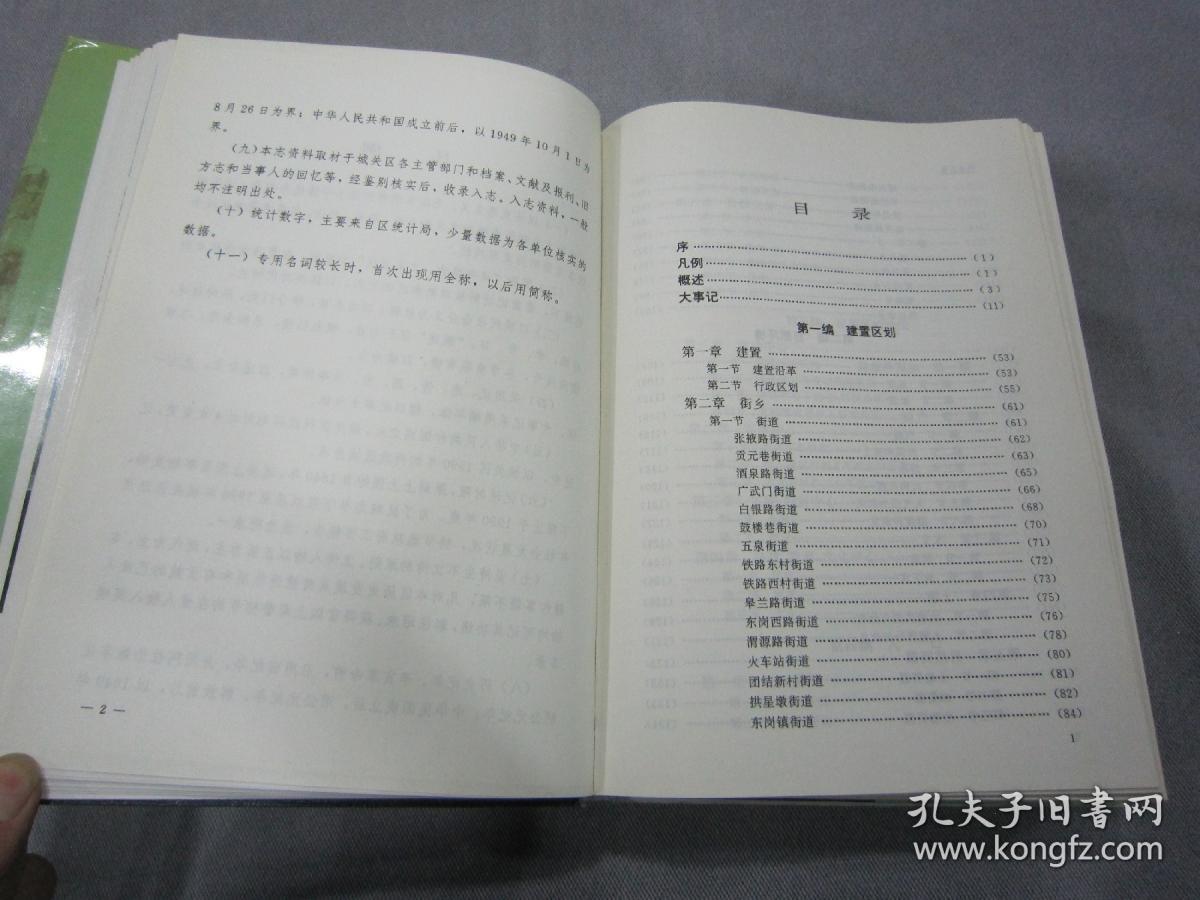 8月26日为界；中华人民共和国成立前后，以1949年10月1日为
界。
（九）本志资料取材于城关区各主管部门和档案、文献及报刊、旧
方志和当事人的回忆等，经鉴别核实后，收录入志。入志资料，一般
均不注明出处。
（十）统计数字，主要来自区统计局，少量数据为各单位核实的
数据。
（十一）专用名词较长时，首次出现用全称，以后用简称。
— 2 —
目 录
序 ……………………（1）
凡例 ……………………（1）
概述 ……………………（3）
大事记 ……………………（11）
第一编 建置区划
第一章 建置 ……………………（53）
第一节 建置沿革 ……………………（53）
第二节 行政区划 ……………………（55）
第二章 街乡 ……………………（61）
第一节 街道 ……………………（61）
张掖路街道 ……………………（62）
贡元巷街道 ……………………（63）
酒泉路街道 ……………………（65）
广武门街道 ……………………（66）
白银路街道 ……………………（68）
鼓楼巷街道 ……………………（70）
五泉街道 ……………………（71）
铁路东村街道 ……………………（72）
铁路西村街道 ……………………（73）
皋兰路街道 ……………………（75）
东岗西路街道 ……………………（76）
渭源路街道 ……………………（78）
火车站街道 ……………………（80）
团结新村街道 ……………………（81）
拱星墩街道 ……………………（82）
东岗镇街道 ……………………（84）
1
孔夫子旧书网
www.kongfz.com